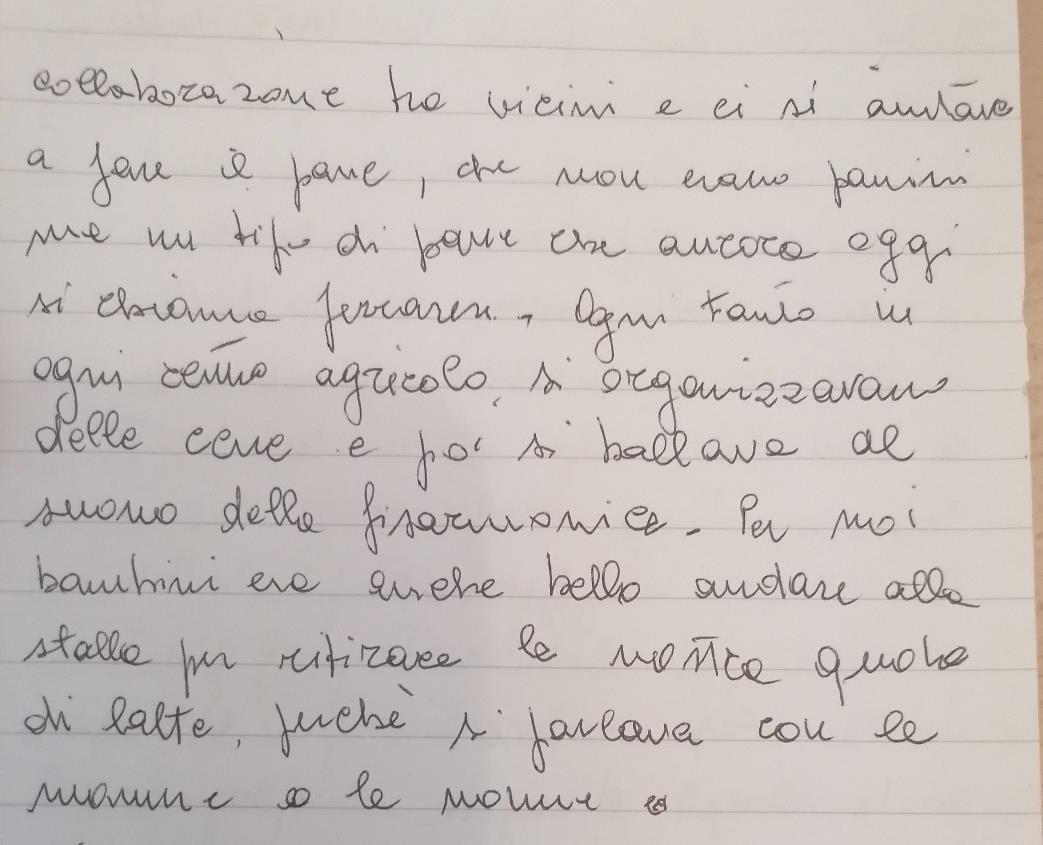 collaborazione tra vicini e ci si aiutava
a fare il pane, che non erano panini
ma un tipo di pane che ancora oggi
si chiama ferrarese. Ogni tanto in
ogni centro agricolo, si organizzavano
delle cene e poi si ballava al
suono della fisarmonica. Per noi
bambini era anche bello andare alla
stalla per ritirare la nostra quota
di latte, perchè si parlava con le
mamme o le nonne e